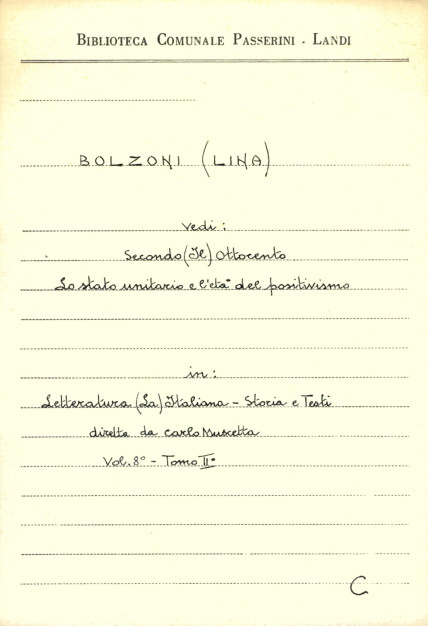 BIBLIOTECA COMUNALE PASSERINI - LANDI
BOLZONI (LINA)
vedi:
Secondo (Il) Ottocento
Lo stato unitario e l'età del positivismo
in:
Letteratura (La) Italiana - Storia e Testi
diretta da Carlo Muscetta
Vol. 8° - Tomo II°
C